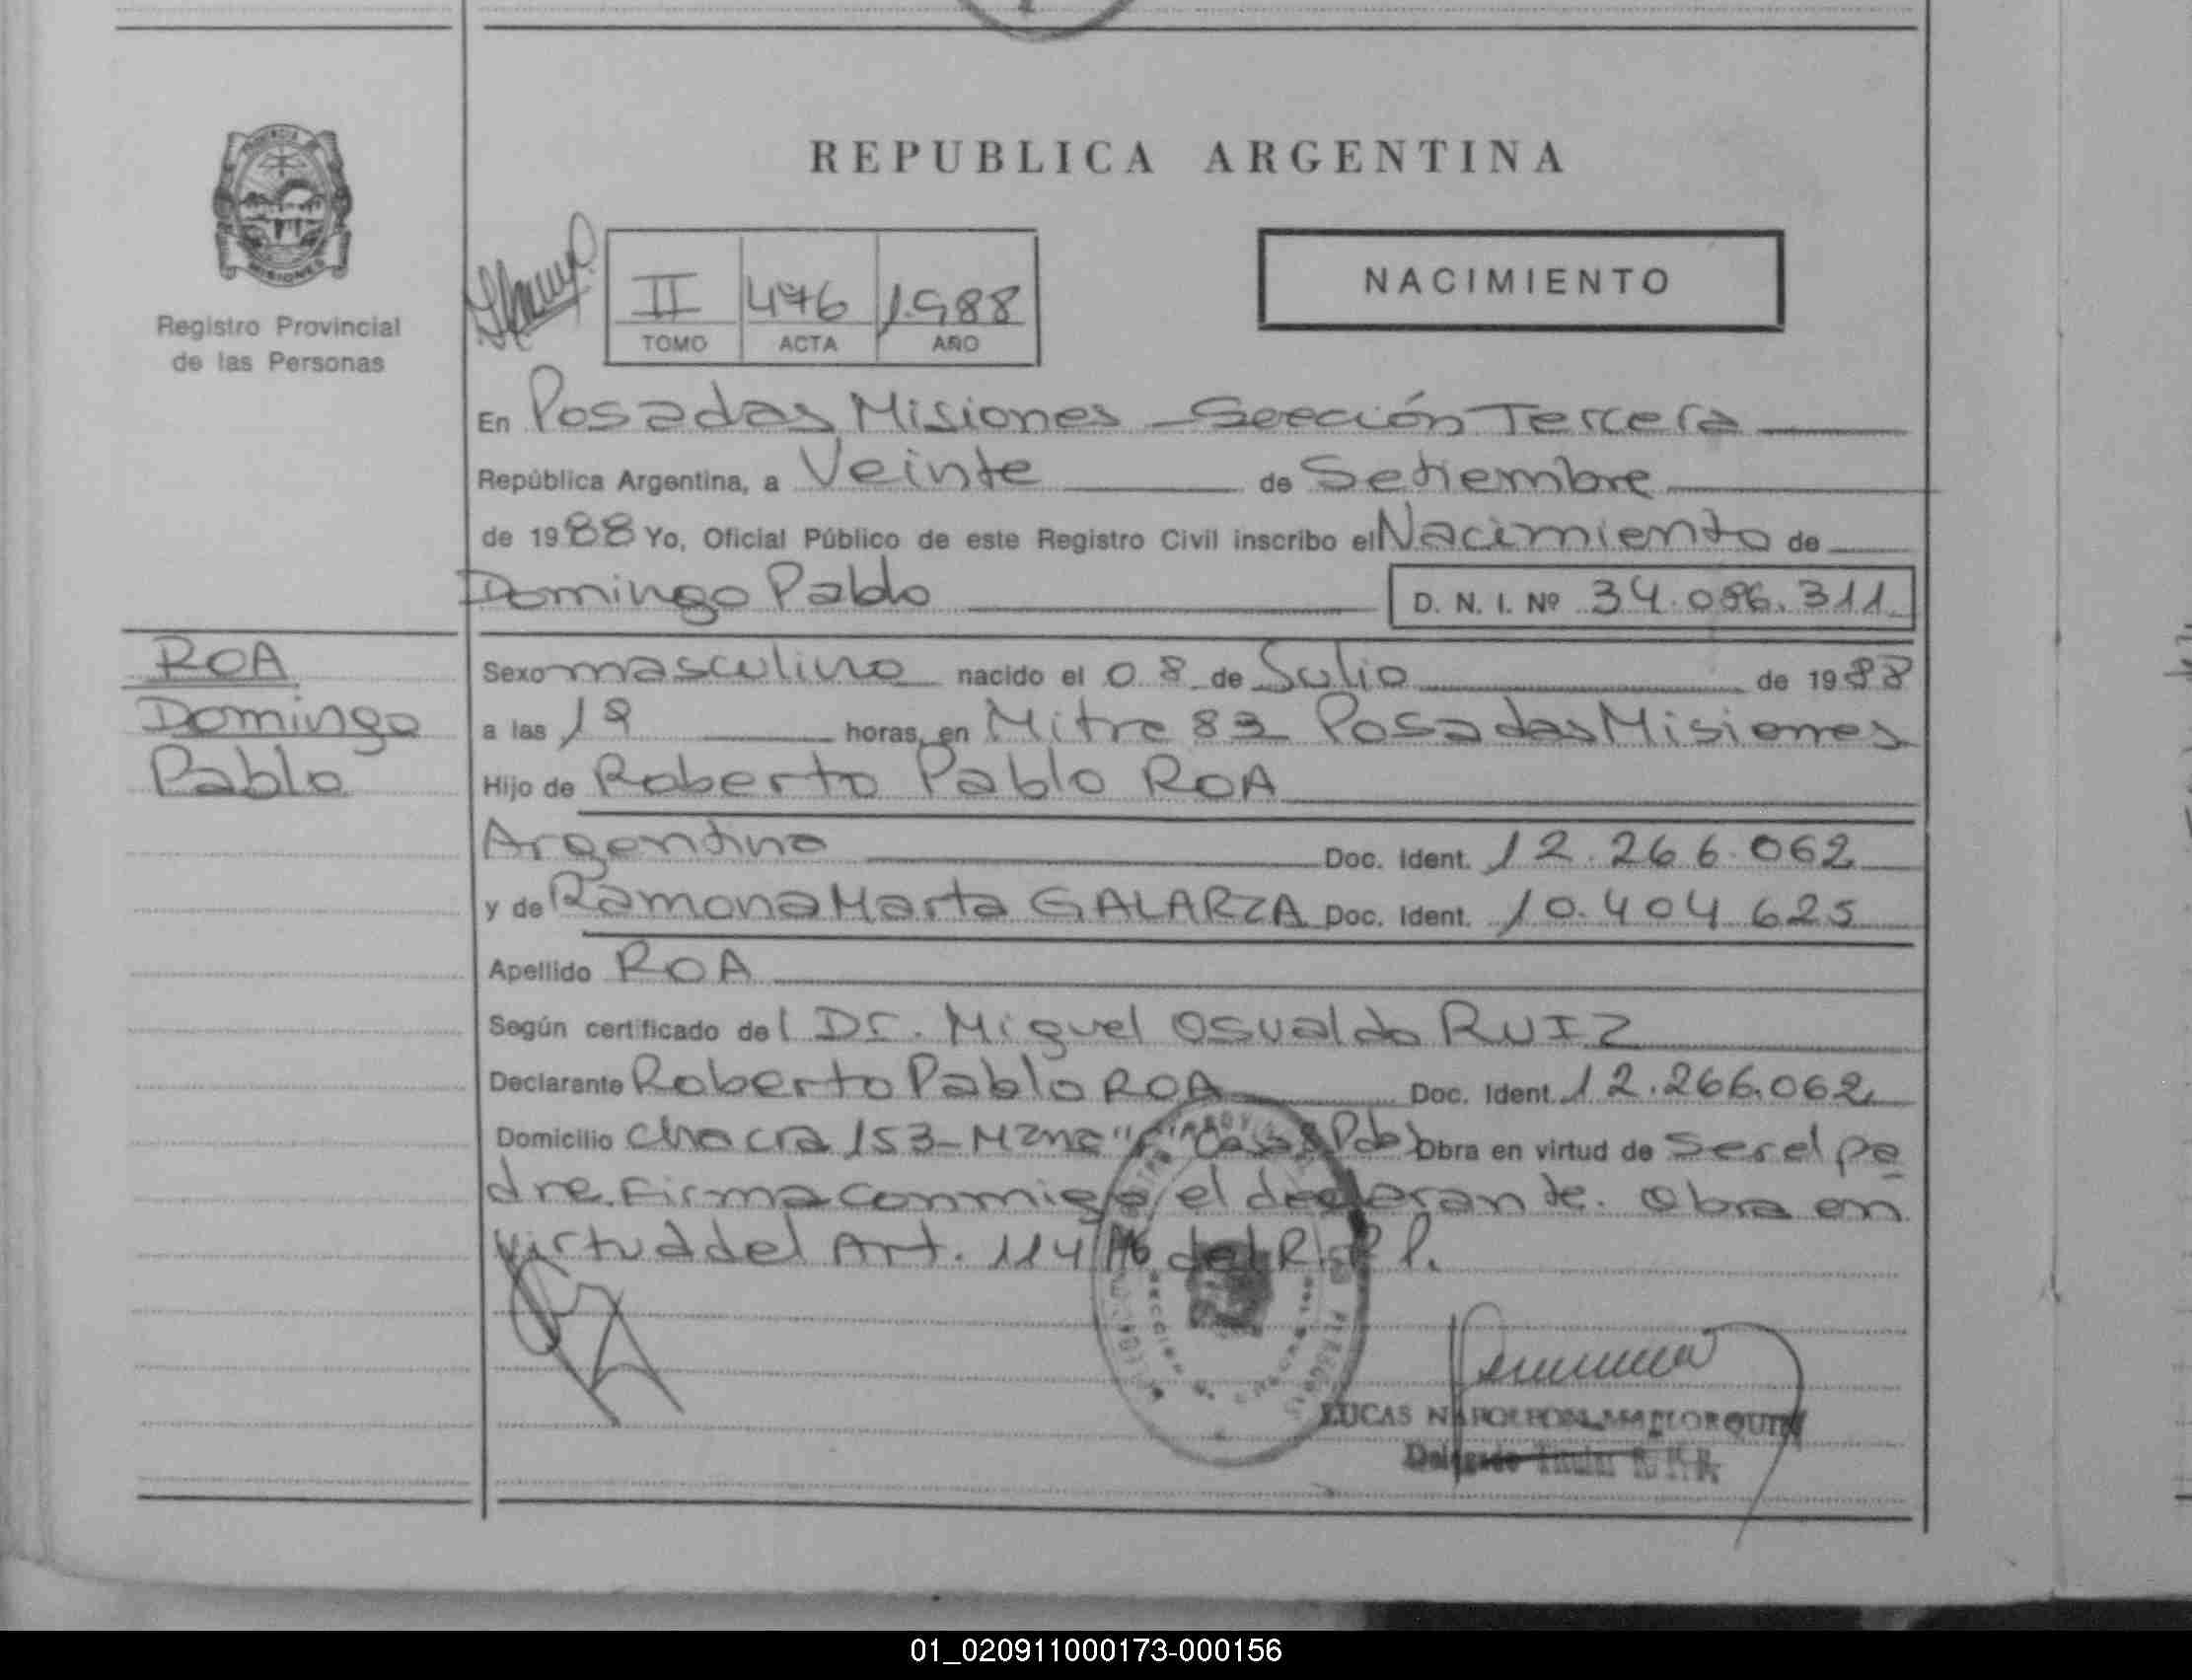 REPUBLICA ARGENTINA
PROVINCIA
MISIONES
Registro Provincial
de las Personas
II 476 1.988
TOMO ACTA AÑO
NACIMIENTO
En Posadas Misiones - Sección Tercera
República Argentina, a Veinte de Setiembre
de 1988 Yo, Oficial Público de este Registro Civil inscribo el Nacimiento de
Domingo Pablo D. N. I. Nº 34.086.311
ROA
Domingo
Pablo
Sexo masculino nacido el 08 de Julio de 1988
a las 19 horas, en Mitre 83 Posadas Misiones
Hijo de Roberto Pablo ROA
Argentino Doc. Ident. 12.266.062
y de Ramona Marta GALARZA Doc. Ident. 10.404 625
Apellido ROA
Según certificado del Dr. Miguel Osvaldo RUIZ
Declarante Roberto Pablo ROA Doc. Ident. 12.266.062
Domicilio Chacra 153- Mzna Casa Obra en virtud de Ser el pa
dre. Firma conmigo el declarante. Obra en
virtud del Art. 114 del
LUCAS NAPOLEON MALLORQUIN
Delegado Titular
01_020911000173-000156